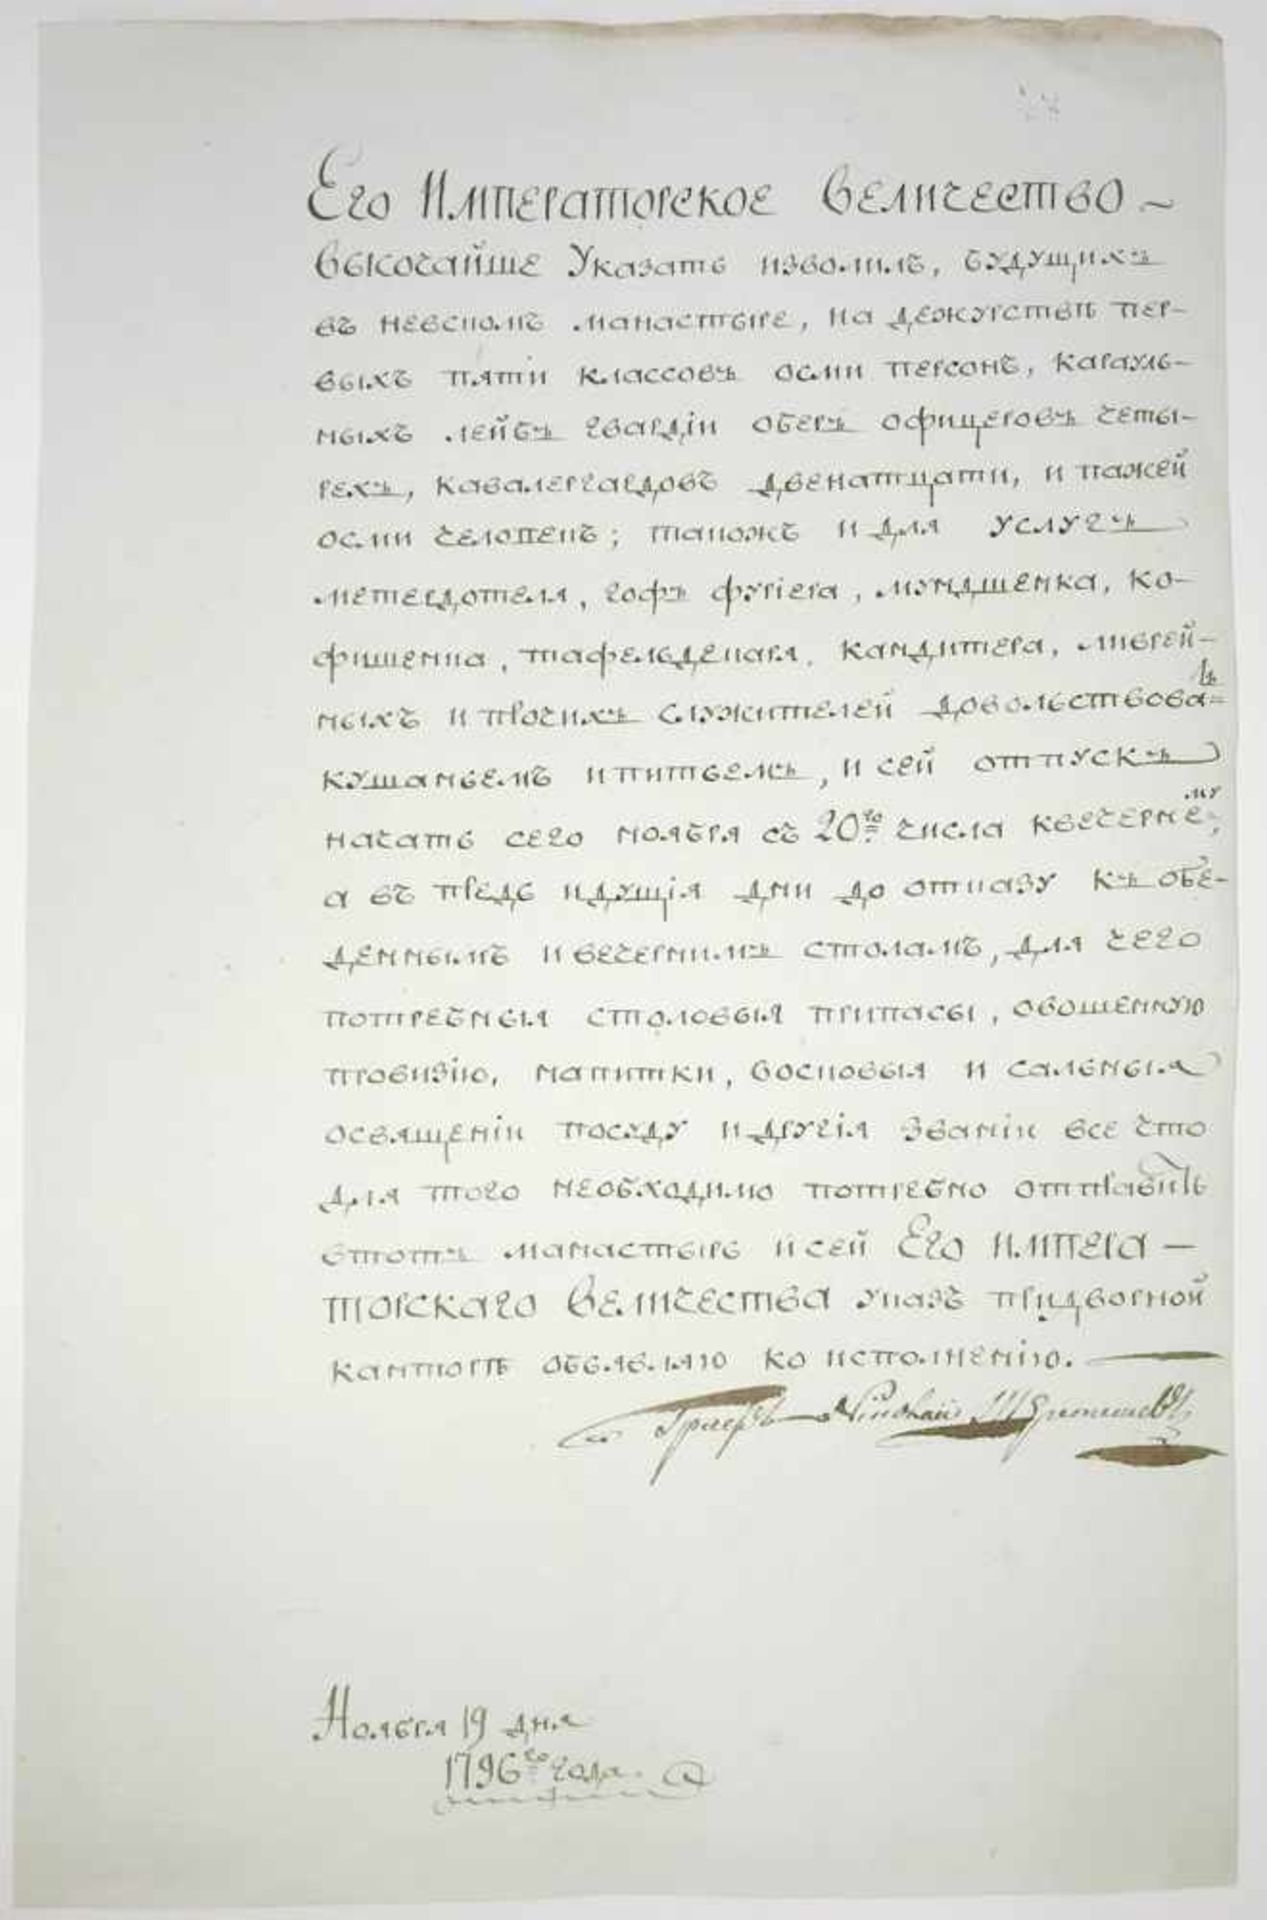 Его Императорское Величество ~
Высочайше Указать изволилъ, будущихъ
въ невскомъ манастыре, на дежурствѣ пер-
выхъ пяти классовъ осми персонъ, карауль-
ныхъ лейбъ гвардіи оберъ офицеровъ четы-
рехъ, кавалергардовъ двенатцати, и пажей
осми человекъ; такожъ и для услугъ
метердотеля, гофъ фуриера, мундшенка, ко-
фишенка, тафельдекаря, кандитера, ливрей-
ныхъ и прочихъ служителей довольствовать
кушаньемъ и питьемъ, и сей отпускъ
начать сего ноября съ 20го числа квечернему,
а въ предь идущія дни до отказу къ обе-
деннымъ и вечернимъ столамъ, для чего
потребныя столовыя припасы, овошенную
провизію, напитки, восковыя и сальныя
освященіи посуду и другія званіи все что
для того необходимо потребно отправить
втотъ манастырь и сей Его Импера-
торскаго Величества указъ придворной
канторѣ объявляю ко исполненію.
Графъ Николай Шереметевъ
Ноября 19 дня
1796го года.